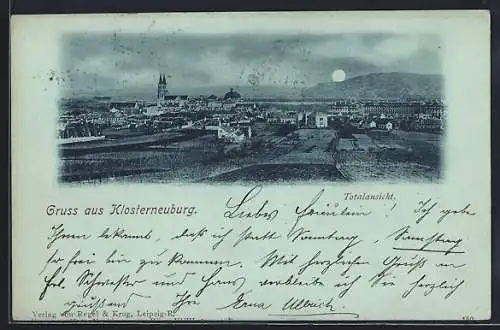 Totalansicht.
Gruss aus Klosterneuburg.
Liebes Fräulein! Ich gebe
Ihnen bekannt, daß ich statt Sonntag, Samstag
so frei bin zu kommen. Mit herzlichen Grüß an
Frl. Schwester und Hans verbleibe ich Sie herzlich
grüßend Ihre Erna Ulbrich
Verlag von Regel & Krug, Leipzig-R.